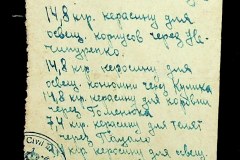 14,8 кгр. керасину для
освещ. корпусов через Не-
чипуренко.
14,8 кгр. керосину для
освещ. конюшни через
14,8 кгр. керасину для коровни
через Гоменюка
74 кгр. керасину для телят
через
кгр. керосину для освещ.
Civil